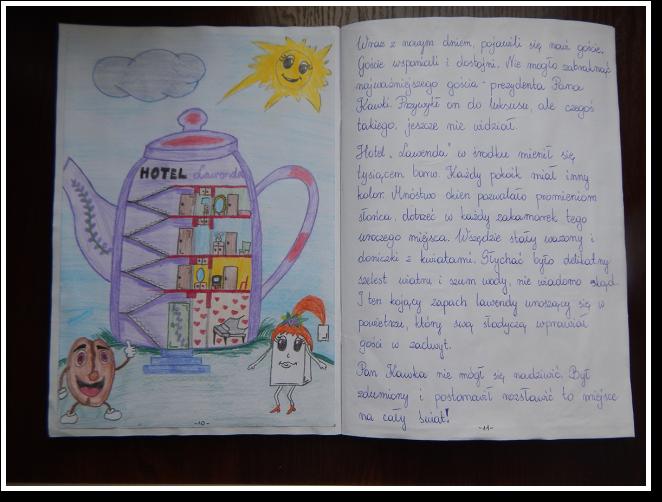 HOTEL Lawenda
-10-
Wraz z nowym dniem, pojawili się nasi goście.
Goście wspaniali i dostojni. Nie mogło zabraknąć
najważniejszego gościa - prezydenta Pana
Kawki. Przywykł on do luksusu, ale czegoś
takiego, jeszcze nie widział.
Hotel „Lawenda" w środku mienił się
tysiącem barw. Każdy pokoik miał inny
kolor. Mnóstwo okien pozwalało promieniom
słońca, dotrzeć w każdy zakamarek tego
uroczego miejsca. Wszędzie stały wazony i
doniczki z kwiatami. Słychać było delikatny
szelest wiatru i szum wody, nie wiadomo skąd.
I ten kojący zapach lawendy unoszący się w
powietrzu, który swą słodyczą wprawiał
gości w zachwyt.
Pan Kawka nie mógł się nadziwić. Był
zdumiony i postanowił rozsławić to miejsce
na cały świat!
-11-